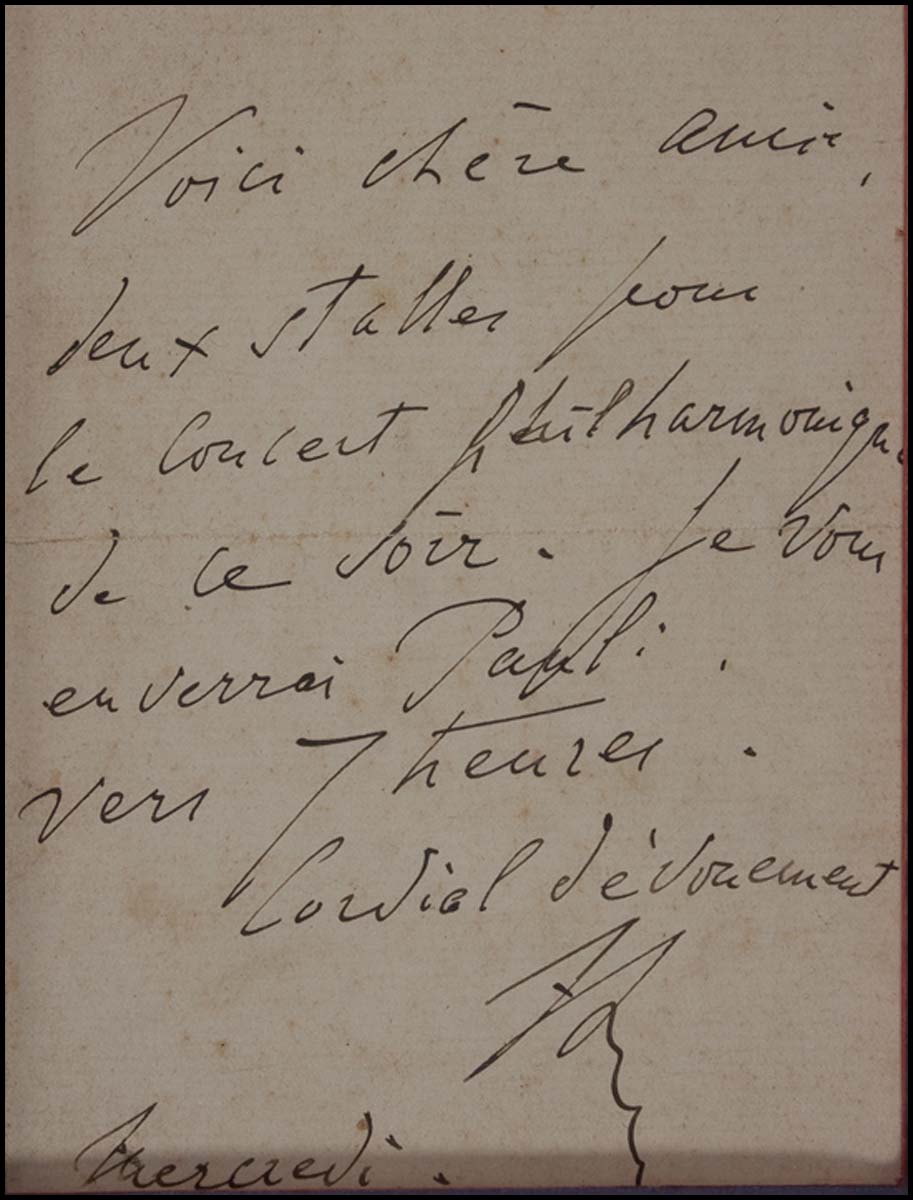 Voici chère amie,
deux stalles pour
le Concert philharmonique
de ce soir. Je vous
enverrai Pauli.
vers 7 heures.
Cordial dévouement
Mercredi.